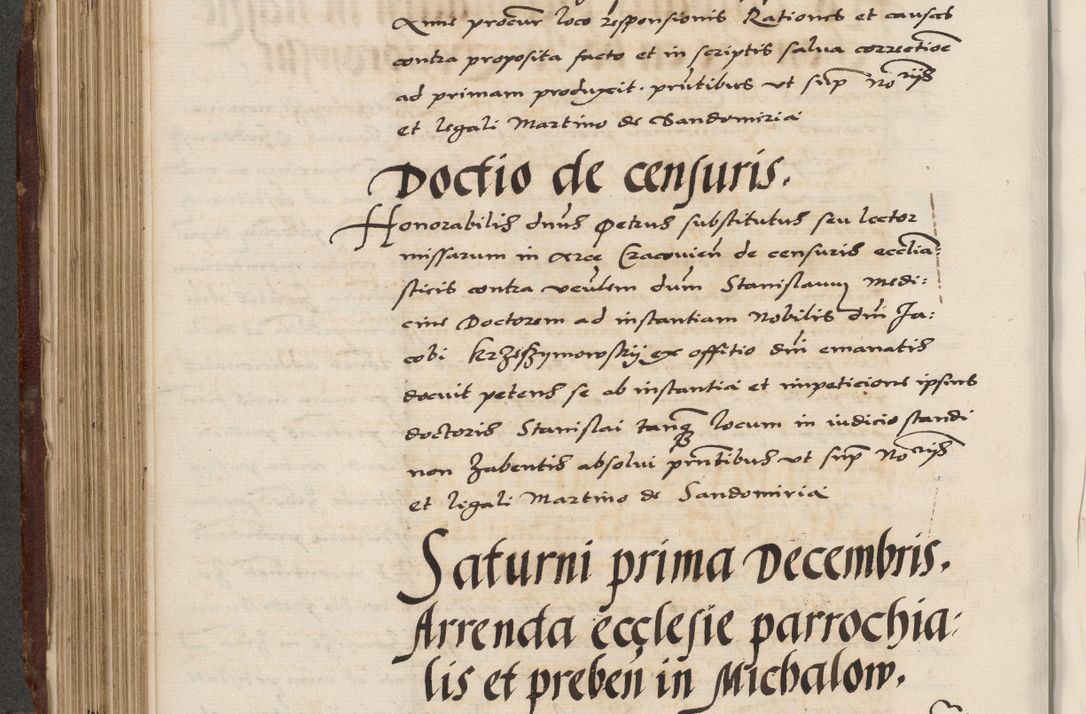 Anne procur loco responsionis Rationes et causas
contra proposita facto et in scriptis salva correctioe
ad primam produxit. pritibus ut sup Noriis
et legali Martino de Sandomiria
Doctio de censuris.
Honorabilis dnus Petrus substitutus seu lector
missarum in Arce Cracovien de censuris ecclia:
sticis contra venlem dum Stanislaum Medi:
cine Doctorem ad instantiam Nobilis dni Ja:
cobi Krzesszymowskij ex offitio dni emanatis
docuit petens se ab instantia et impeticione ipsius
doctoris Stanislai tanq locum in iudicio standi
non habentis absolvi prntibus ut sup Noriis
et legali Martino de Sandomiria
Saturni prima Decembris.
Arrenda ecclesie parrochia:
lis et preben in Michalow.